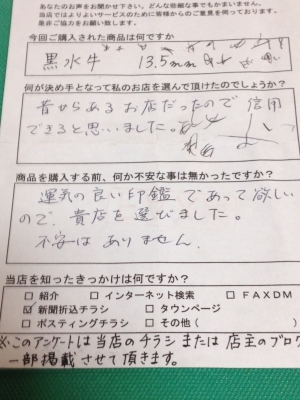 あなたのお声をお聞かせ下さい。どんな些細な事でもかまいません。
当店ではよりよいサービスのために皆様からのご意見を伺っております。
是非ご協力をお願い致します。
今回ご購入された商品は何ですか
黒水牛 13.5mm
何が決め手となって私のお店を選んで頂けたのでしょうか？
昔からあるお店だったので信用
できると思いました。
商品を購入する前、何か不安な事は無かったですか？
運気の良い印鑑であって欲しい
ので、貴店を選びました。
不安はありません。
当店を知ったきっかけは何ですか？
□ 紹介 □ インターネット検索 □ FAXDM
☑ 新聞折込チラシ □ タウンページ
□ ポスティングチラシ □ その他（ ）
※このアンケートは当店のチラシまたは店主のブログ
一部掲載させて頂きます。